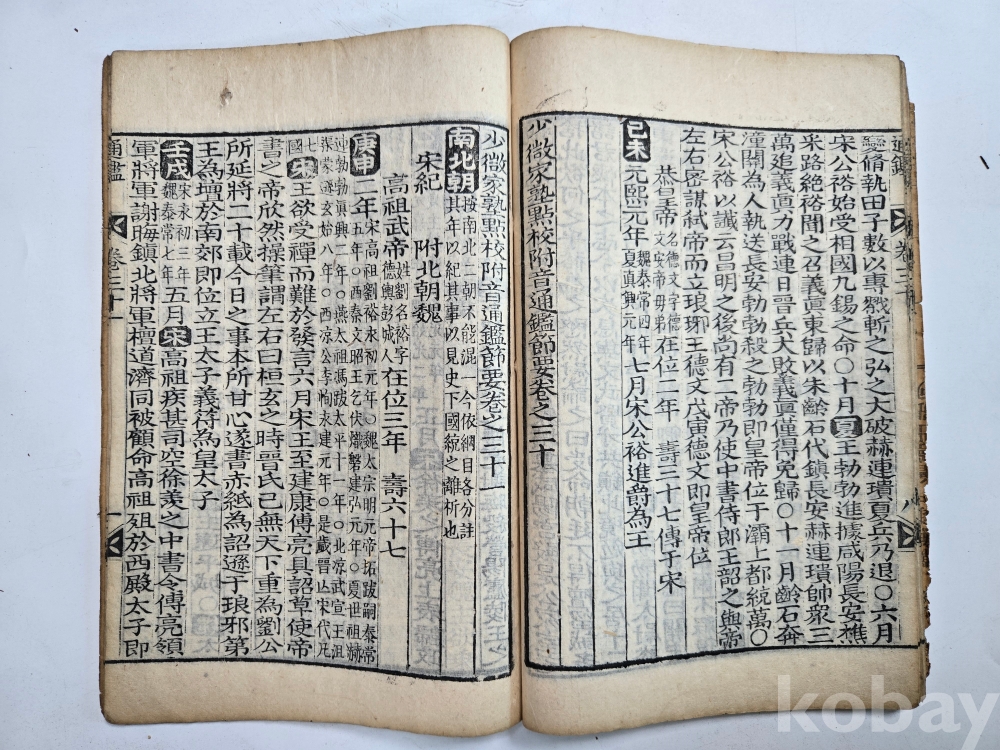 通鑑 卷三十 八
巒脩執田子數以專戮斬之弘之大破赫連璝夏兵乃退○六月
宋公裕始受相國九錫之命○十月夏王勃勃進據咸陽長安樵
采路絕裕聞之召義眞東歸以朱齡石代鎭長安赫連璝帥衆三
萬追義眞力戰連日晉兵大敗義眞僅得免歸○十一月齡石奔
潼關為人執送長安勃勃殺之勃勃即皇帝位于灞上都統萬○
宋公裕以讖云昌明之後尚有二帝乃使中書侍郎王韶之與帝
左右密謀弑帝而立琅琊王德文戊寅德文即皇帝位
恭皇帝名德文字德文安帝母弟在位二年 壽三十七傳于宋
己未元熙元年魏泰常四年夏真興元年七月宋公裕進爵為王
少微家塾點校附音通鑑節要卷之三十
少微家塾點校附音通鑑節要卷之三十一
南北朝按南北二朝不能混一今依綱目各分註其年以紀其事以見史下國統之離析也
宋紀 附北朝魏
高祖武帝姓劉名裕字德輿彭城人在位三年 壽六十七
庚申二年宋高祖劉裕永初元年○魏太宗明元帝拓跋嗣泰常五年○西秦文昭王乞伏熾磐建弘元年○夏世祖赫連勃勃眞興二年○燕太祖馮跋太平十一年○北凉武宣王沮渠蒙遜玄始八年○西凉公李恂永建元年○是歲晉亡宋代凡七國宋王欲受禪而難於發言六月宋王至建康傅亮具詔草使帝
書之帝欣然操筆謂左右曰桓玄之時晉氏已無天下重為劉公
所延將二十載今日之事本所甘心遂書赤紙為詔遜于琅邪第
王為壇於南郊即位立王太子義符為皇太子
壬戌宋永初三年魏泰常七年五月宋高祖疾甚司空徐羡之中書令傅亮領
軍將軍謝晦鎭北將軍檀道濟同被顧命高祖殂於西殿太子即
通鑑 卷三十一 一
kobay